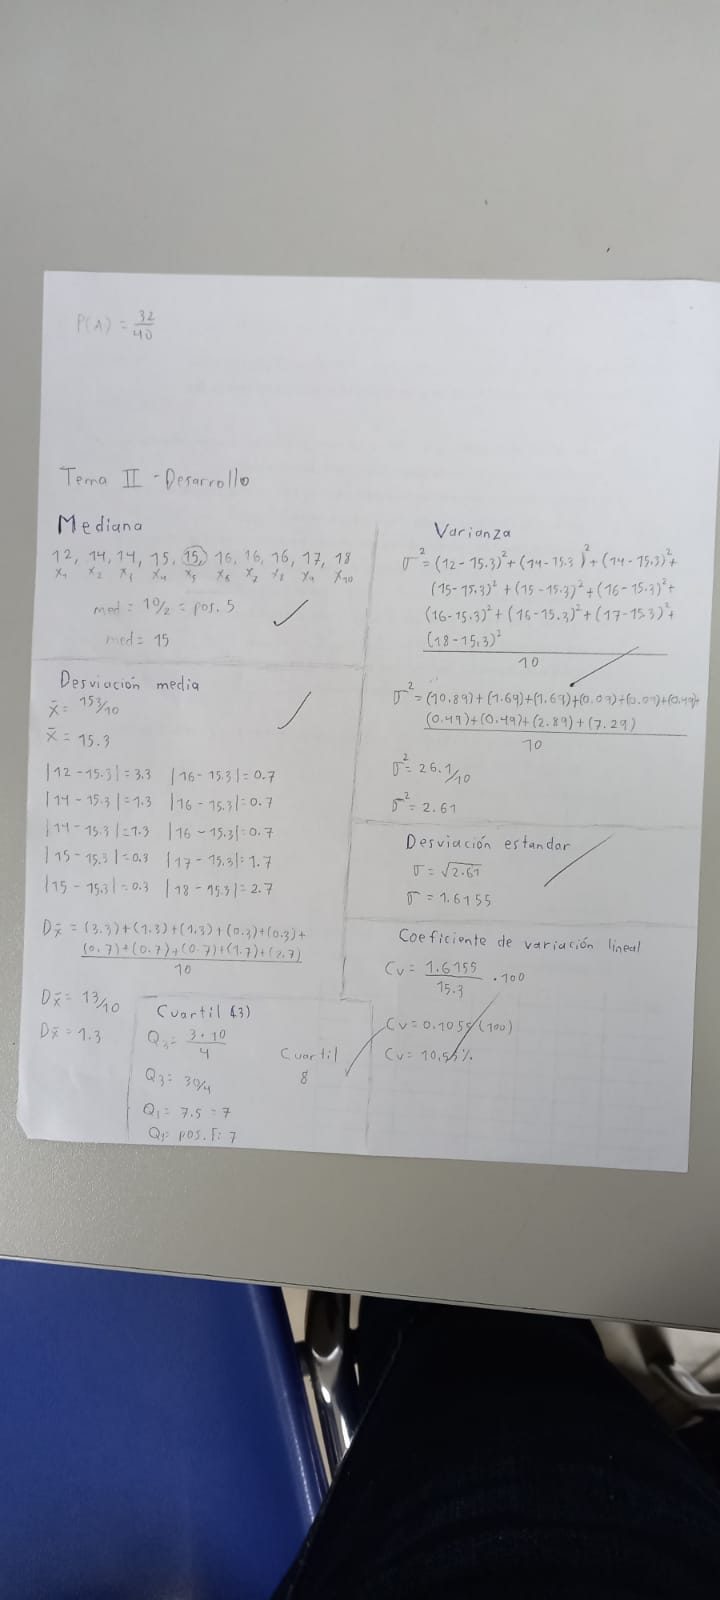 P(A) = 32/40
Tema II - Desarrollo
Mediana
12, 14, 14, 15, 15, 16, 16, 16, 17, 18
x₁ x₂ x₃ x₄ x₅ x₆ x₇ x₈ x₉ x₁₀
med = 10/2 = pos. 5
med = 15
Desviación media
x̄ = 153/10
x̄ = 15.3
|12 - 15.3| = 3.3 |16 - 15.3| = 0.7
|14 - 15.3| = 1.3 |16 - 15.3| = 0.7
|14 - 15.3| = 1.3 |16 - 15.3| = 0.7
|15 - 15.3| = 0.3 |17 - 15.3| = 1.7
|15 - 15.3| = 0.3 |18 - 15.3| = 2.7
Dx̄ = (3.3)+(1.3)+(1.3)+(0.3)+(0.3)+
(0.7)+(0.7)+(0.7)+(1.7)+(2.7)
10
Dx̄ = 13/10
Dx̄ = 1.3
Cuartil (3)
Q₃ = 3·10/4
Q₃ = 30/4
Q₁ = 7.5 = 7
pos. 7
Cuartil
8
Varianza
σ² = (12 - 15.3)² + (14 - 15.3)² + (14 - 15.3)² +
(15 - 15.3)² + (15 - 15.3)² + (16 - 15.3)² +
(16 - 15.3)² + (16 - 15.3)² + (17 - 15.3)² +
(18 - 15.3)²
10
σ² = (10.89)+(1.69)+(1.69)+(0.09)+(0.09)+(0.49)+
(0.49)+(0.49)+(2.89)+(7.29)
10
σ² = 26.1/10
σ² = 2.61
Desviación estandar
σ = √2.61
σ = 1.6155
Coeficiente de variación lineal
Cv = 1.6155/15.3 · 100
Cv = 0.1055 (100)
Cv = 10,55%